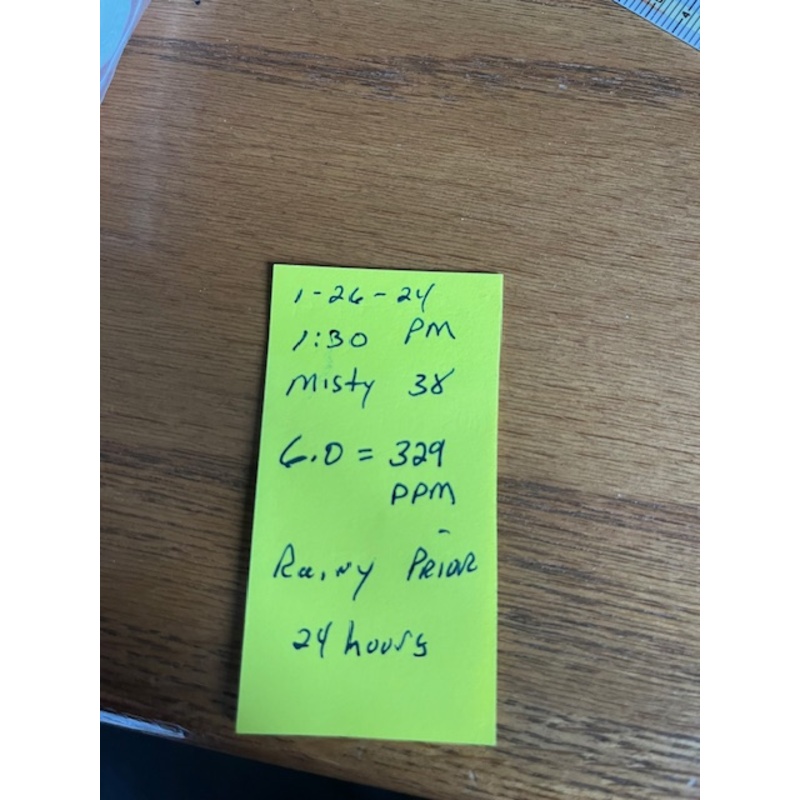 1-26-24
1:30 PM
Misty 38
6.0 = 329
PPM
Rainy PRIOR
24 hours